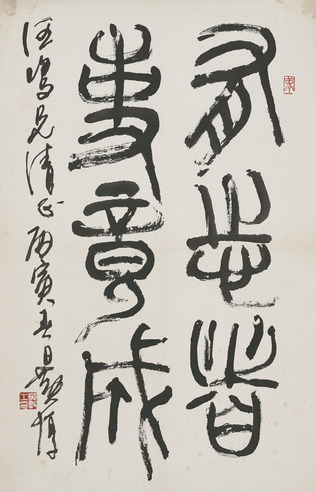 有志者
事竟成
兄清正丙寅春日